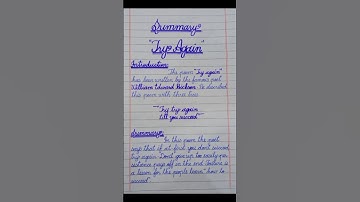 Summary
"Try Again"
Introduction
The Poem "Try again"
has been written by the famous poet
William Edward Hickson. He described
this poem with these lines
"Try try again
till you succeed"
Summary
In this poem the poet
says that if at first you don't succeed
try again. Don't give up too easily
pays off in the end. Failure is
a lesson for the people learn how to
succeed